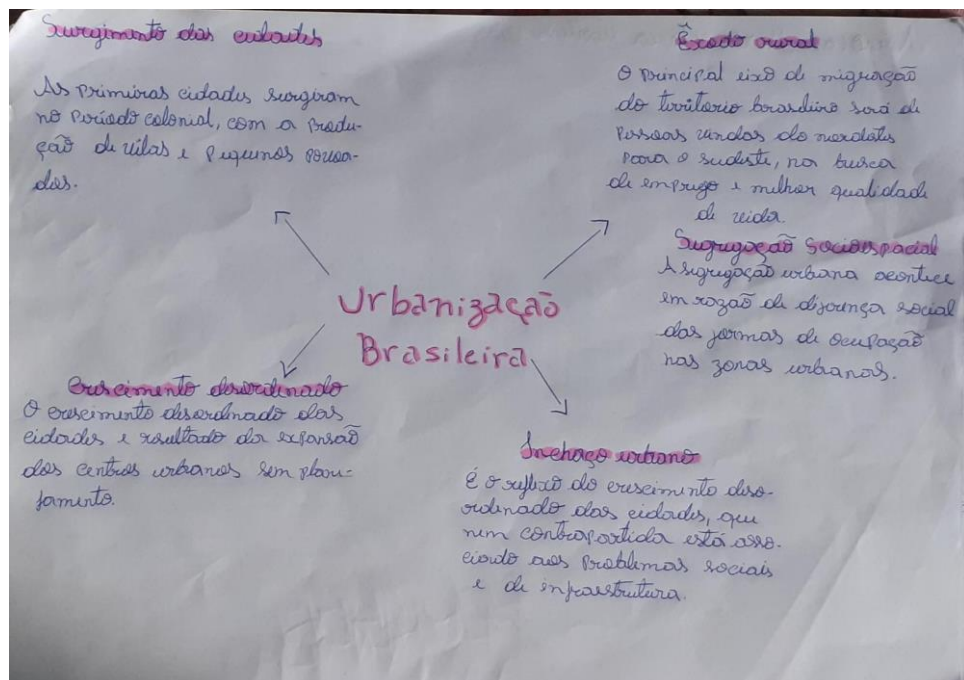 Surgimento das cidades
As primeiras cidades surgiram
no período colonial, com a produ-
ção de vilas e pequenos povoa-
dos.
Êxodo rural
O principal eixo de migração
do território brasileiro será de
pessoas vindas do nordeste
para o sudeste, na busca
de emprego e melhor qualidade
de vida.
Segregação socioespacial
A segregação urbana acontece
em razão de diferença social
das formas de ocupação
nas zonas urbanas.
Urbanização
Brasileira
Crescimento desordenado
O crescimento desordenado das
cidades e resultado da expansão
dos centros urbanos sem plane-
jamento.
Inchaço urbano
É o reflexo do crescimento deso-
rdenado das cidades, que
nem contrapartida está asso-
ciado aos problemas sociais
e de infraestrutura.